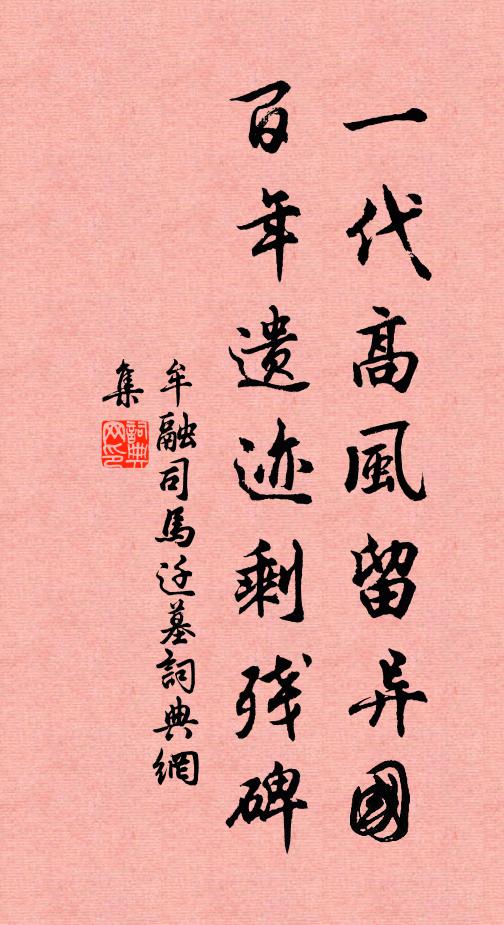 一代高風留异國
百年遺迹剩残碑
牟融司馬迁墓詞典網
集
詞典
网印